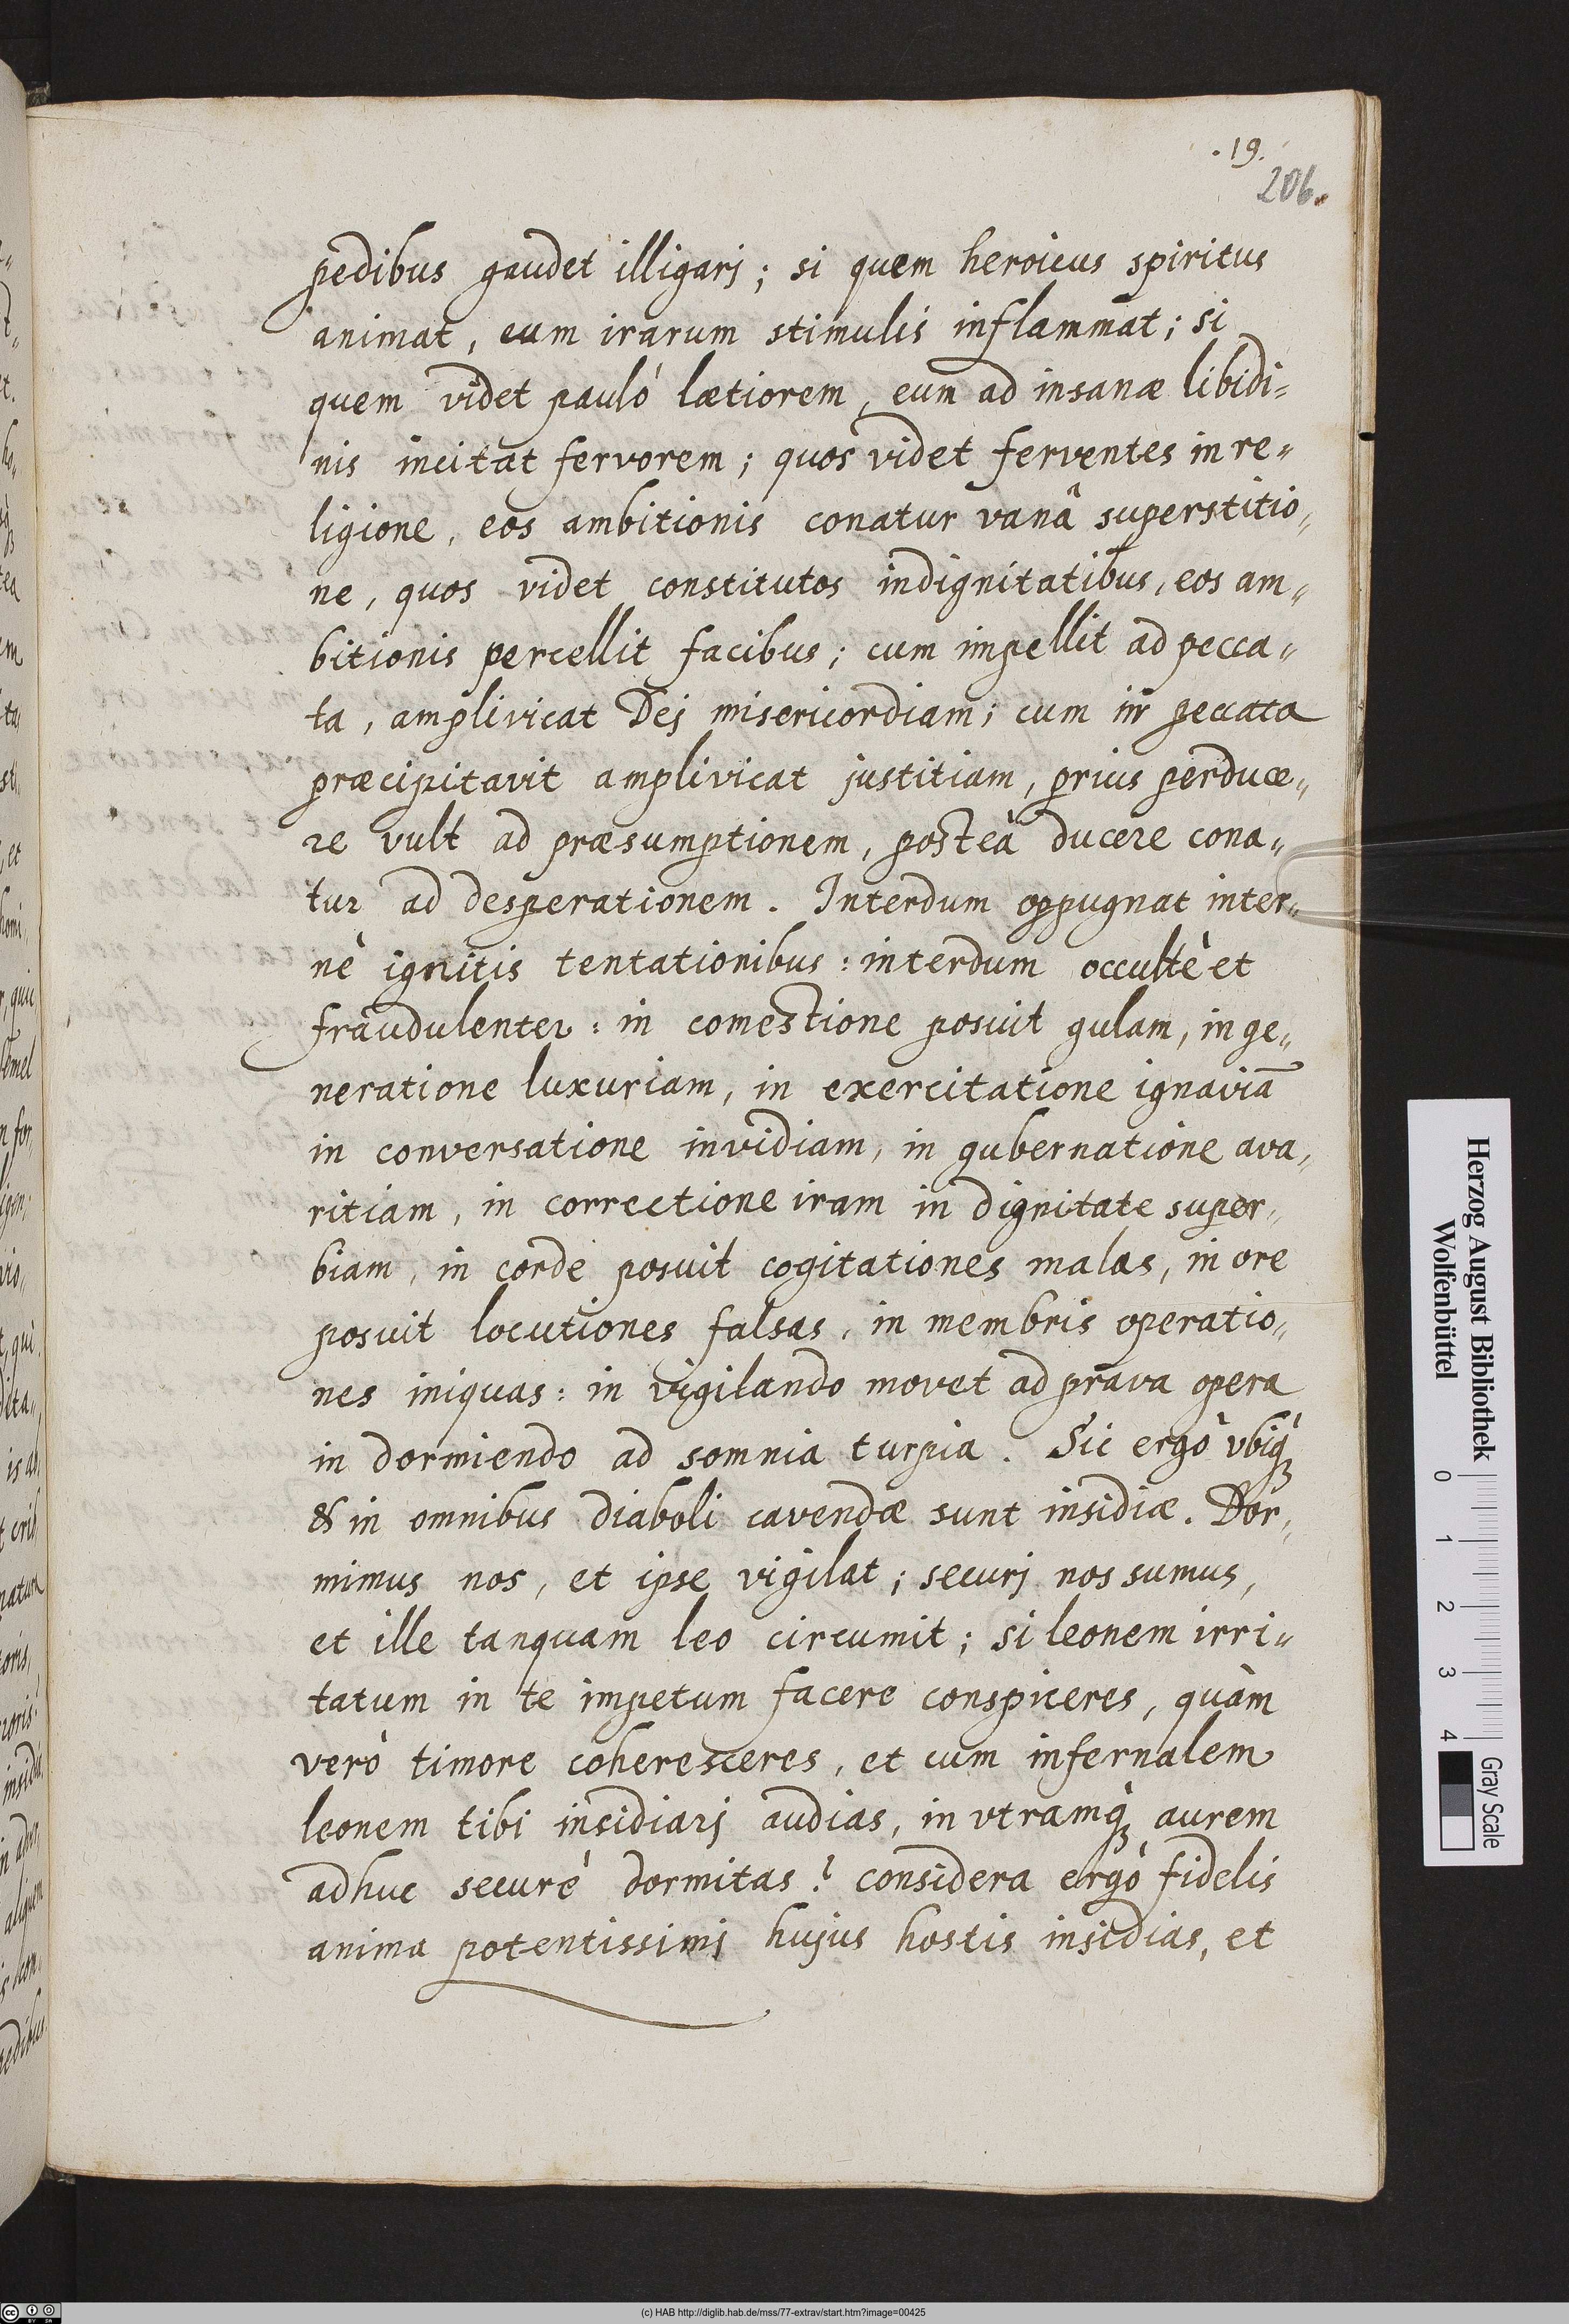 .19.
206.
pedibus gaudet illigarj; si quem heroicus spiritus
animat, eum irarum stimulis inflammat; si
quem videt pauló lætiorem, eum ad insanæ libidi=
nis incitat fervorem; quos videt ferventes in re=
ligione, eos ambitionis conatur vanâ superstitio=
ne, quos videt constitutos indignitatibus, eos am=
bitionis percellit facibus; cum impellit ad pecca=
ta, amplivicat Dej misericordiam; cum in peccata
præcipitavit amplivicat justitiam, prius perduce=
re vult ad præsumptionem, posteà ducere cona=
tur ad desperationem. Interdum oppugnat inter=
nè ignitis tentationibus: interdum occultè et
fraudulenter: in comestione posuit gulam, in ge=
neratione luxuriam, in exercitatione ignaviā
in conversatione invidiam, in gubernatione ava=
ritiam, in correctione iram in dignitate super=
biam, in corde posuit cogitationes malas, in ore
posuit locutiones falsas, in membris operatio=
nes iniquas: in vigilando movet ad prava opera
in dormiendo ad somnia turpia. Sic ergò vbiq̀ꝫ
& in omnibus diaboli cavendæ sunt insidiæ. Dor=
mimus nos, et ipse vigilat; securj nos sumus,
et ille tanquam leo circumit; si leonem irri=
tatum in te impetum facere conspiceres, quàm
verò timore coheresceres, et cum infernalem
leonem tibi insidiarj audias, in vtramq̀ꝫ aurem
adhuc securè dormitas? considera ergò fidelis
anima potentissimj hujus hostis insidias, et
Herzog August Bibliothek
Wolfenbüttel
0 1 2 3 4
Gray Scale
(c) HAB http://diglib.hab.de/mss/77-extrav/start.htm?image=00425